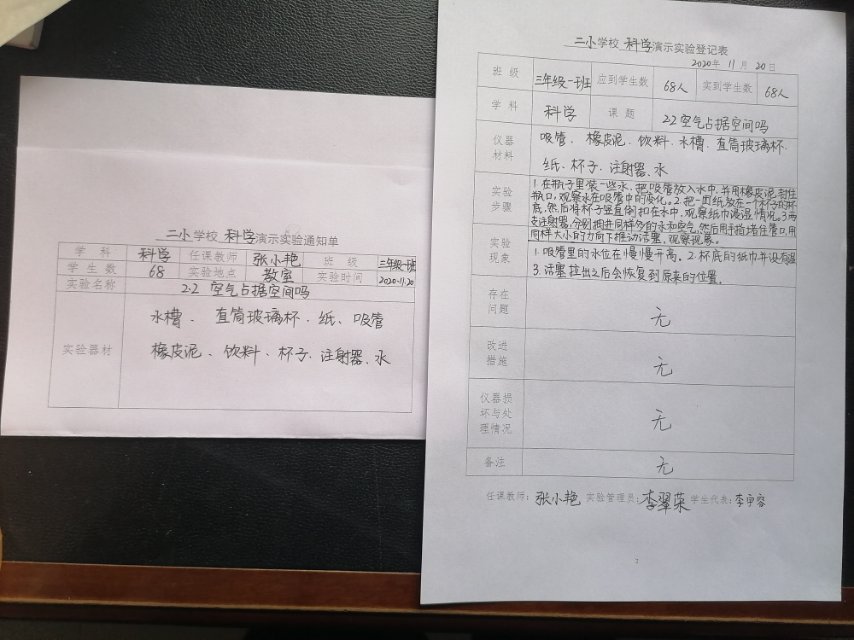 二小学校 科学演示实验通知单
学科 科学 任课教师 张小艳 班级 三年级一班
学生数 68 实验地点 教室 实验时间 2020.11.20
实验名称 2.2 空气占据空间吗
水槽、直筒玻璃杯、纸、吸管
实验器材 橡皮泥、饮料、杯子、注射器、水
二小学校 科学演示实验登记表
2020年 11月 20日
班级 三年级一班 应到学生数 68人 实到学生数 68人
学科 科学 课题 2.2 空气占据空间吗
仪器 吸管、橡皮泥、饮料、水槽、直筒玻璃杯、
材料 纸、杯子、注射器、水
实验 1.在瓶子里装一些水,把吸管放入水中,并用橡皮泥封住
步骤 瓶口,观察水在吸管中的变化。2.把一团纸放在一个杯子的杯
底,然后将杯子竖直倒扣在水中,观察纸巾浸湿情况。3.两
支注射器,分别抽进同样多的水和空气,然后用手指堵住管口,用
同样大小的力向下推动活塞,观察现象。
实验 1.吸管里的水位在慢慢升高。2.杯底的纸巾并没有湿
现象 3.活塞拉出之后会恢复到原来的位置。
存在
问题 无
改进
措施 无
仪器损
坏与处 无
理情况
备注 无
任课教师:张小艳 实验管理员:李翠荣 学生代表:李
2